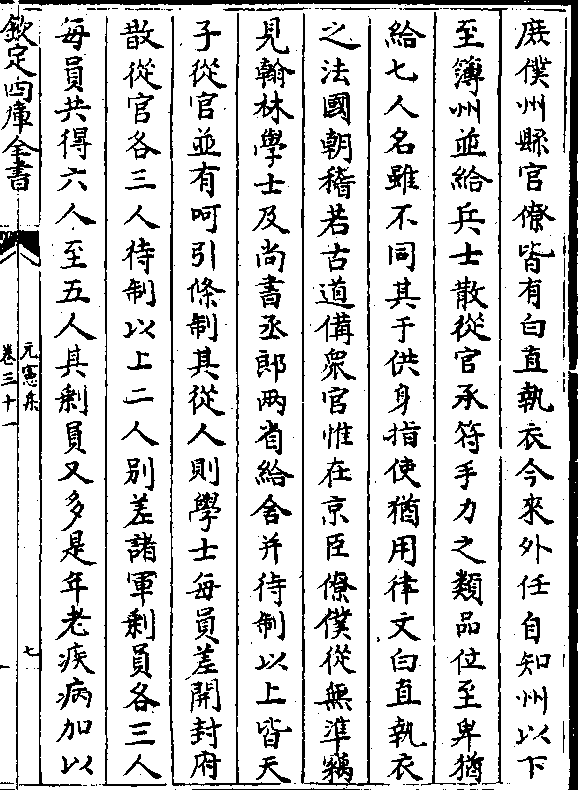 庶僕州縣官僚皆有白直執衣今來外任自知州以下
至簿州並給兵士散從官承符手力之類品位至卑猶
給七人名雖不同其于供身指使猶用律文白直執衣
之法國朝稽若古道備衆官惟在京臣僚僕從無準竊
見翰林學士及尚書丞郎兩省給舍并待制以上皆天
子從官並有呵引條制其從人則學士每員差開封府
散從官各三人待制以上二人别差諸軍剩員各三人
每員共得六人至五人其剩員又多是年老疾病加以
欽定四庫全書
元憲集
卷三十一
七